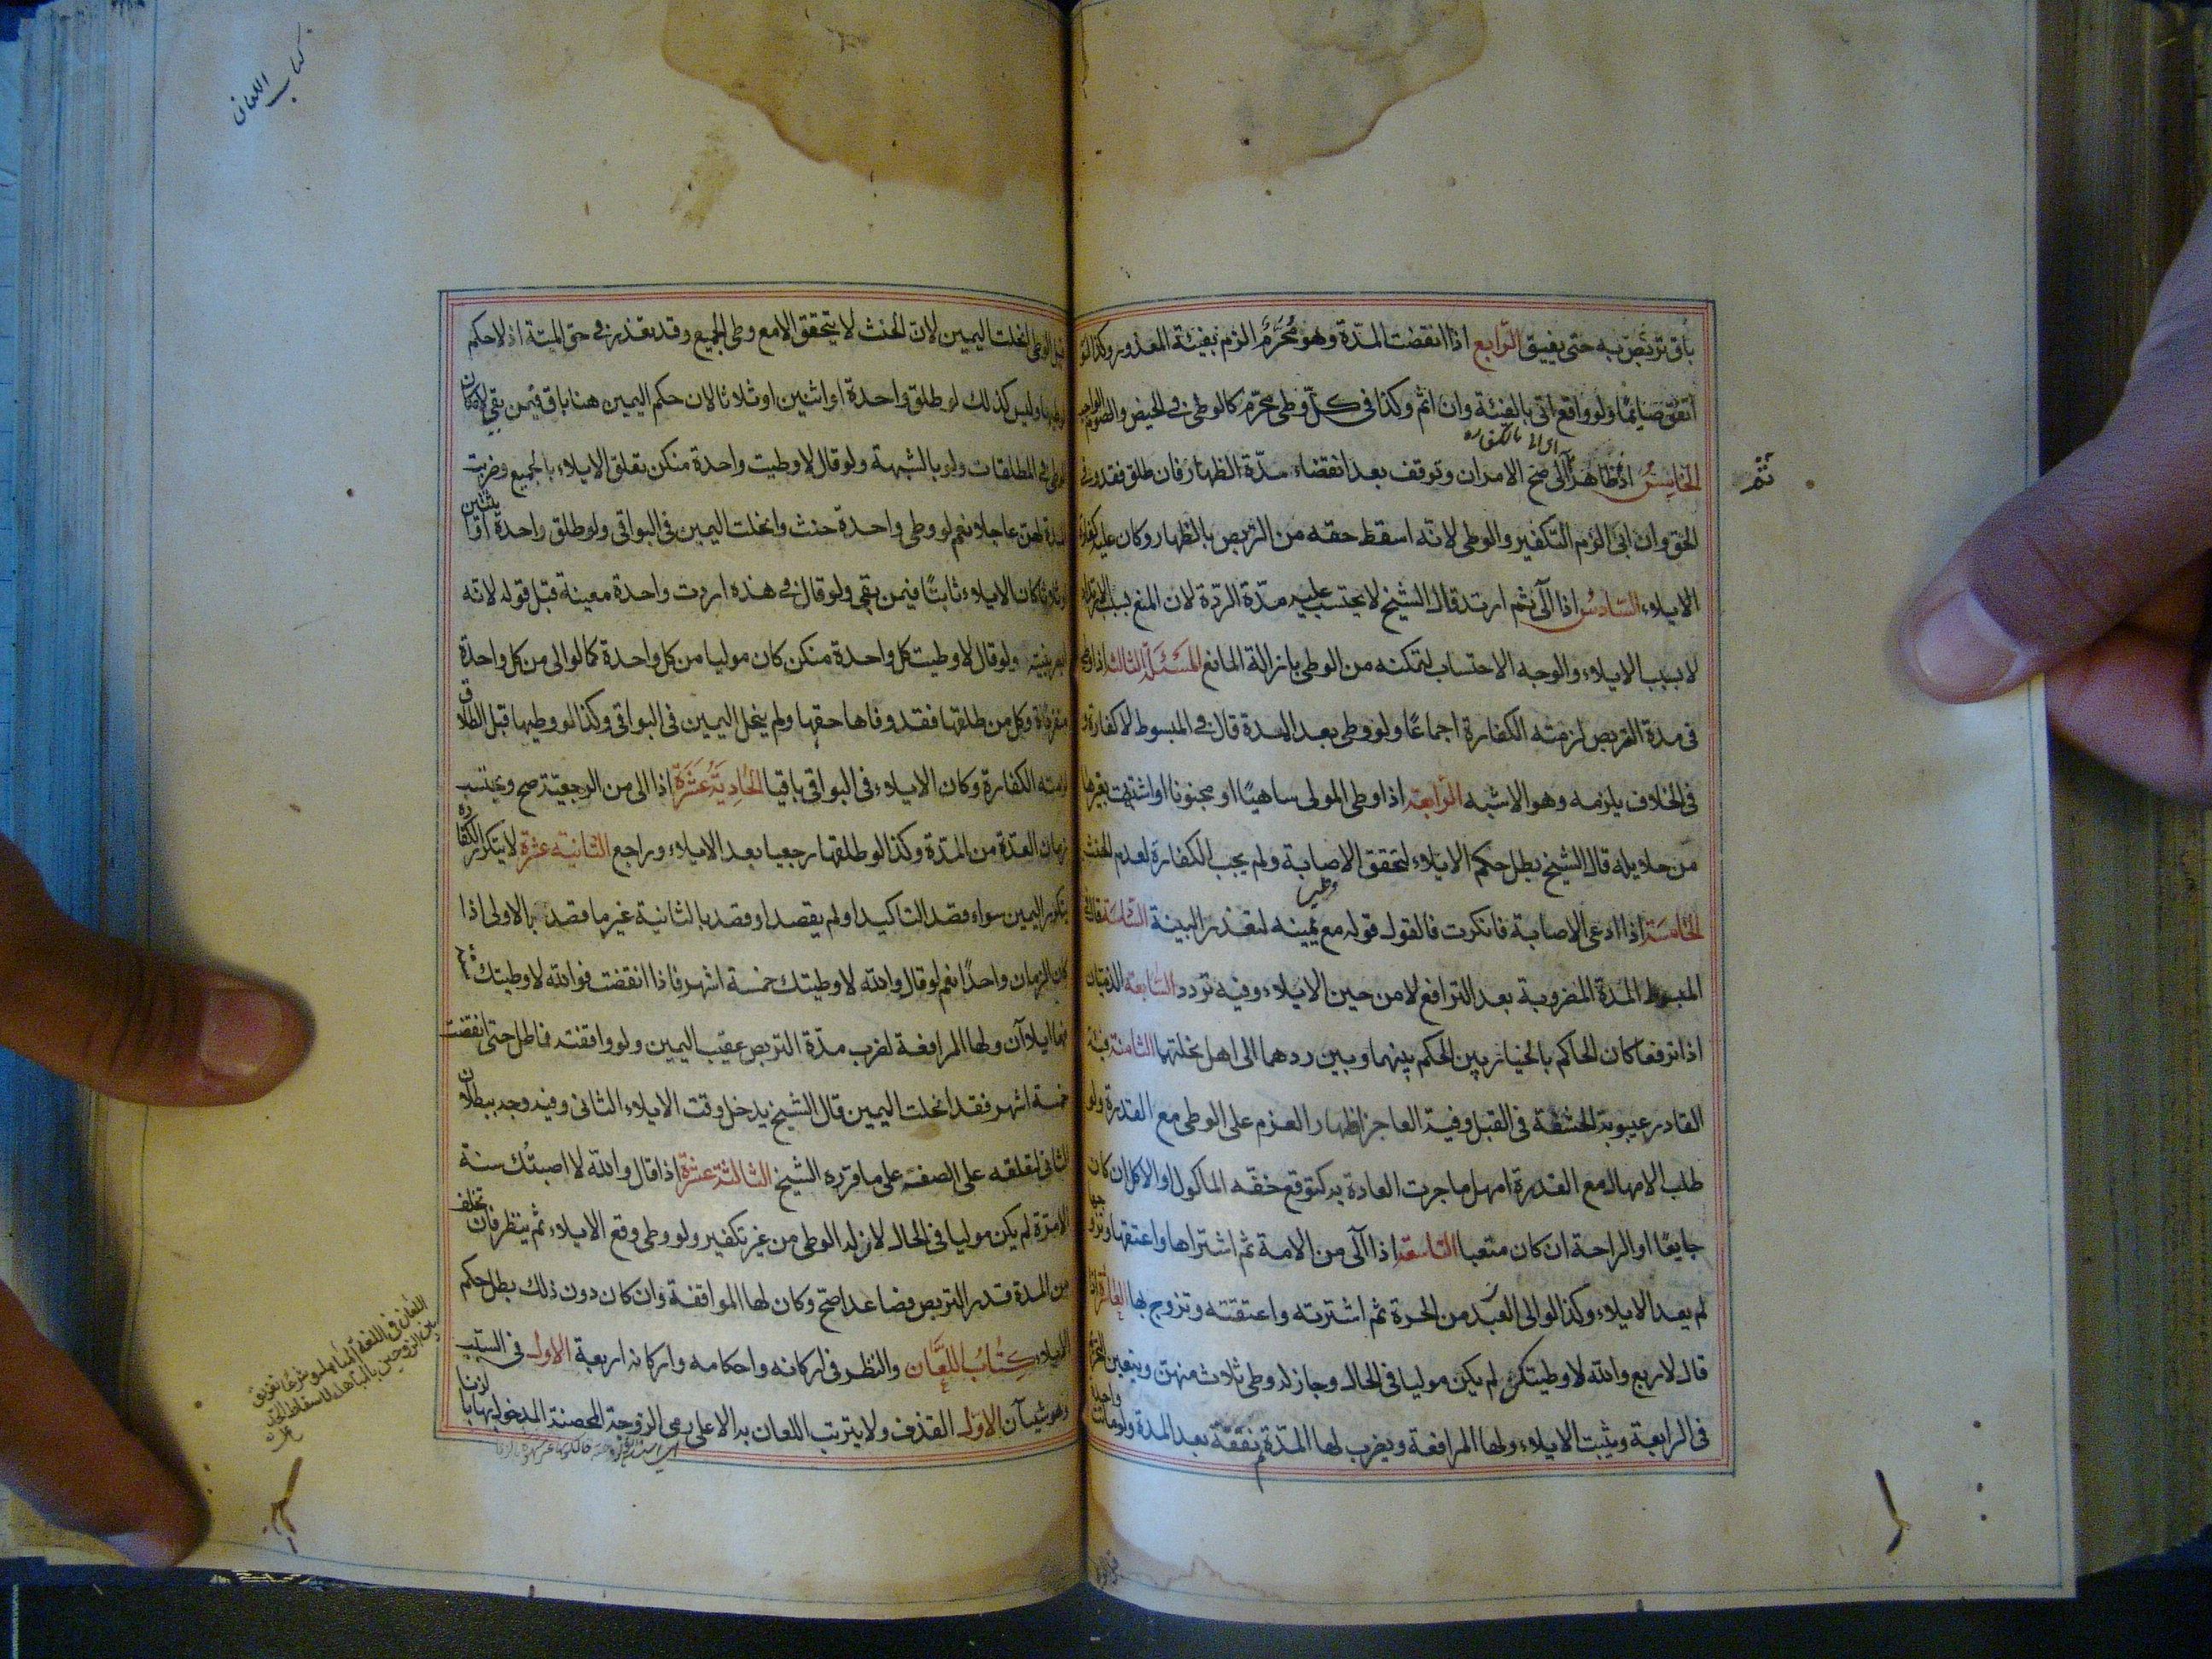 باق تربص به حتى يفيق الرابع اذا انقضت المدة وهو محرم الزم بفيئة المعذور وكذا لو
اتفق صائما ولو واقع اتى بالفئة وان اثم وكذا فى كل وطى محرم كالوطى فى الحيض والصوم الواجب
الخامس اذا ظاهر ثم آلى صح الامران وتوقف بعد انقضاء مدة الظهار فان طلق فقد وفى
ثم
الحق وان ابى الزم التكفير والوطى لانه اسقط حقه من التربص بالظهار وكان عليه كفارة
الايلاء السادس اذا آلى ثم ارتد قال الشيخ لا يحتسب عليه مدة الردة لان المنع بسبب الارتداد
لا بسبب الايلاء والوجه الاحتساب لتمكنه من الوطى بازالة المانع المسئلة الثالثة اذا وطى
فى مدة التربص لزمته الكفارة اجماعا ولو وطى بعد المدة قال فى المبسوط لا كفارة و
فى الخلاف يلزمه وهو الاشبه الرابعة اذا وطى المولى ساهيا او مجنونا او اشتبهت بغيرها
من حلايله قال الشيخ بطل حكم الايلاء لتحقق الاصابة ولم يجب الكفارة لعدم الحنث
الخامسة اذا ادعى الاصابة فانكرت فالقول قوله مع يمينه لتعذر البينة السادسة قال فى
المبسوط المدة المضروبة بعد الترافع لا من حين الايلاء وفيه تردد السابعة الذميان
اذا ترفعا كان الحاكم بالخيار بين الحكم بينهما وبين ردهما الى اهل نحلتهما الثامنة فيئة
القادر غيبوبة الحشفة فى القبل وفيئة العاجز اظهار العزم على الوطى مع القدرة ولو
طلب الامهال مع القدرة امهل ما جرت العادة به كتوقع خفة الماكول او الاكل ان كان
جايعا او الراحة ان كان متعبا التاسعة اذا آلى من الامة ثم اشتراها واعتقها وتزوجها
لم يعد الايلاء وكذا لو الى العبد من الحرة ثم اشترته واعتقته وتزوج بها العاشرة اذا
قال لاربع والله لا وطيتكن لم يكن موليا فى الحال وجاز له وطى ثلاث منهن ويتعين التحريم
فى الرابعة ويثبت الايلاء ولها المرافعة ويضرب لها المدة ثم تفقه بعد المدة ولو ماتت واحدة
كتاب اللعان
قبل الوطى انحلت اليمين لان الحنث لا يتحقق الا مع وطى الجميع وقد تعذر فى حق الميتة اذ لا حكم
لوطيها وليس كذلك لو طلق واحدة او اثنين او ثلاثا لان حكم اليمين هنا باق فيمن بقى لامكان
الوطى فى المطلقات ولو بالشبهة ولو قال لا وطيت واحدة منكن تعلق الايلاء بالجميع وضربت
المدة لهن عاجلا نعم لو وطى واحدة حنث وانحلت اليمين فى البواقى ولو طلق واحدة او اثنتين
او ثلاثا كان الايلاء ثابتا فيمن بقى ولو قال فى هذه اردت واحدة معينة قبل قوله لانه
ابصر بنيته ولو قال لا وطيت كل واحدة منكن كان موليا من كل واحدة كما لو الى من كل واحدة
منفردة وكل من طلقها فقد وفاها حقها ولم ينحل اليمين فى البواقى وكذا لو وطيها قبل الطلاق
لزمته الكفارة وكان الايلاء فى البواقى باقيا الحادية عشرة اذا الى من الرجعية صح ويحتسب
زمان العدة من المدة وكذا لو طلقها رجعيا بعد الايلاء وراجع الثانية عشرة لا يتكرر الكفارة
بتكرر اليمين سواء قصد التاكيد او لم يقصد او قصد بالثانية غير ما قصد بالاولى اذا
كان الزمان واحدا نعم لو قال والله لا وطيتك خمسة اشهر فاذا انقضت فوالله لا وطيتك
فهما ايلاآن ولها المرافعة لضرب مدة التربص عقيب اليمين ولو وافقته فماطل حتى انقضت
خمسة اشهر فقد انحلت اليمين قال الشيخ يدخل وقت الايلاء الثانى وفيه وجه ببطلان
الثانى لتعلقه على الصفة على ما قرره الشيخ الثالثة عشرة اذا قال والله لا اصبتك سنة
الا مرة لم يكن موليا فى الحال لان له الوطى من غير تكفير ولو وطى وقع الايلاء ثم ينظر فان تخلف
من المدة قدر التربص فصاعدا صح وكان لها الموافقة وان كان دون ذلك بطل حكم
الايلاء كتاب اللعان والنظر فى اركانه واحكامه واركانه اربعة الاول فى السبب
وهو شيئان الاول القذف ولا يترتب اللعان به الا على رمى الزوجة المحصنة المدخول بها بالزنا
اللعان فى اللغة المباهلة وشرعا تفريق
بين الزوجين بالمباهلة لاسقاط الحد